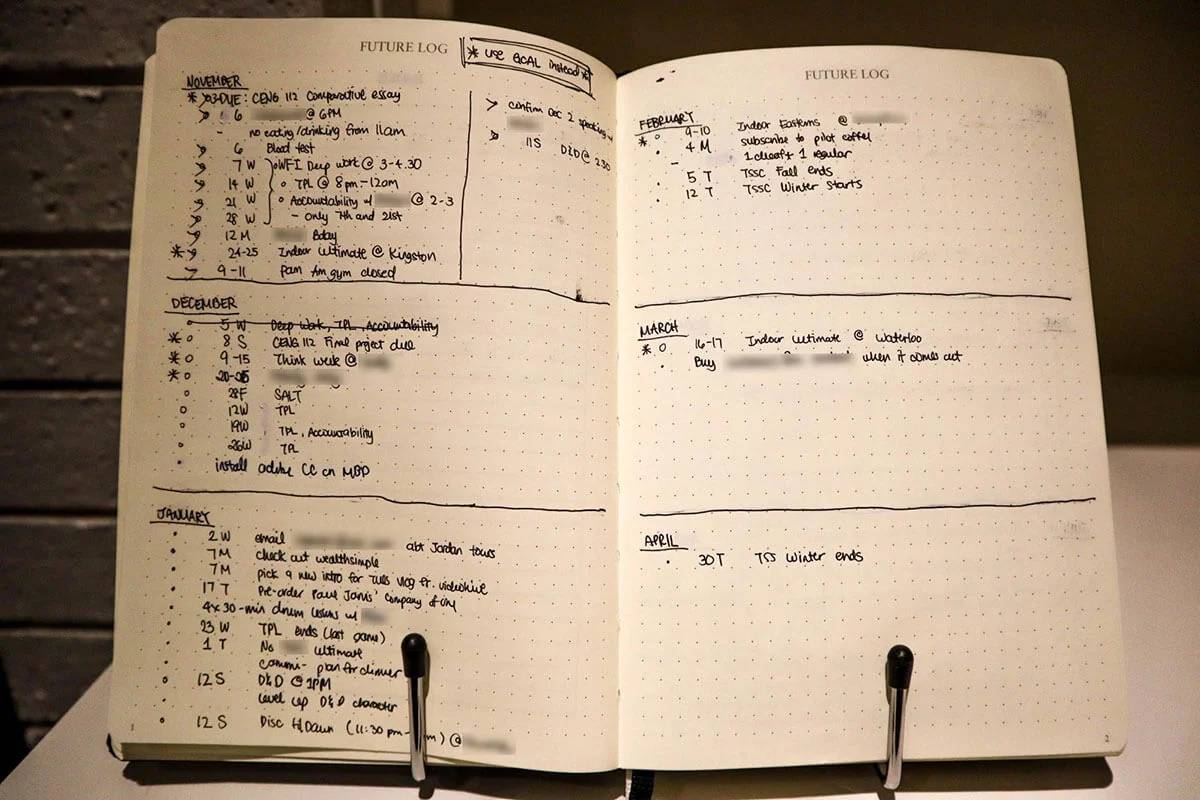 FUTURE LOG
* USE GCAL instead *
NOVEMBER
* > 03-DUE: CENG 112 Comparative essay
> 6 @ 6PM
- no eating/drinking from 11am
> 6 Blood test
> 7 W o WFI Deep work @ 3-4.30
> 14 W o TPL @ 8pm-12am
> 21 W o Accountability w/ @ 2-3
> 28 W - only 7th and 21st
> 12 M Bday
* > 24-25 Indoor Ultimate @ Kingston
> 9-11 Pam Am gym closed
> confirm Dec 2 speaking w/
> 11S D&D @ 2:30
DECEMBER
o 5 W Deep Work, TPL, Accountability
* o 8 S CENG 112 Final project due
* o 9-15 Think week @
* o
o 28F SALT
o 12W TPL
19W TPL, Accountability
o 26W TPL
• install adobe CC on MBP
JANUARY
• 2 W email abt Jordan tours
• 7M check out wealthsimple
• 7M pick a new intro for vlog fr. videohive
• 17 T Pre-order Paul Jarvis' Company of One
• 4x 30-min drum lessons w/
• 23 W TPL ends (last game)
• 1 T No ultimate
• plan for dinner
o 12 S D&D @ 1PM
• Level up D&D character
o 12 S Disc til Dawn (11:30 pm- m) @
1
FUTURE LOG
FEBRUARY
* o 9-10 Indoor Easterns @
• 4 M subscribe to pilot coffee
- 1 decaf + 1 regular
• 5 T TSSC Fall ends
• 12 T TSSC Winter starts
MARCH
* o 16-17 Indoor Ultimate @ Waterloo
• Buy when it comes out
APRIL
• 30 T TSS Winter ends
2